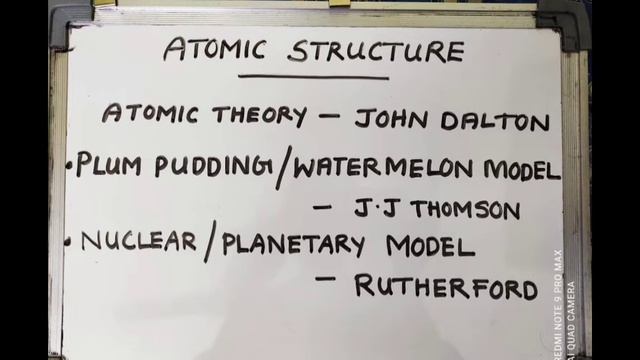 ATOMIC STRUCTURE
ATOMIC THEORY – JOHN DALTON
• PLUM PUDDING/WATERMELON MODEL
– J.J THOMSON
• NUCLEAR/PLANETARY MODEL
– RUTHERFORD
REDMI NOTE 9 PRO MAX
AI QUAD CAMERA